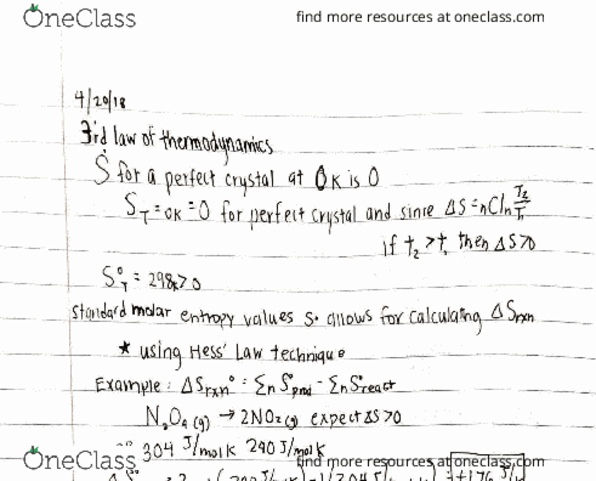 OneClass find more resources at oneclass.com
4/20/18
3rd law of thermodynamics
S for a perfect crystal at 0K is 0
S_T=0K = 0 for perfect crystal and since ΔS=nCln T2/T1
if t2 > t1 then ΔS>0
S°_T = 298K>0
standard molar entropy values S° allows for calculating ΔSrxn
★ using Hess' Law technique
Example: ΔSrxn° = ΣnS°prod - ΣnS°react
N2O4(g) → 2NO2(g) expect ΔS>0
304 J/molK 240 J/molK
OneClass find more resources at oneclass.com